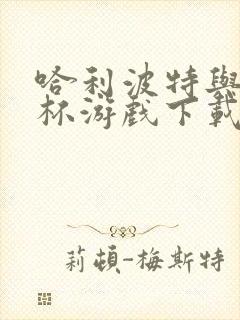 哈利波特與
杯游戲下載
莉頓-梅斯特